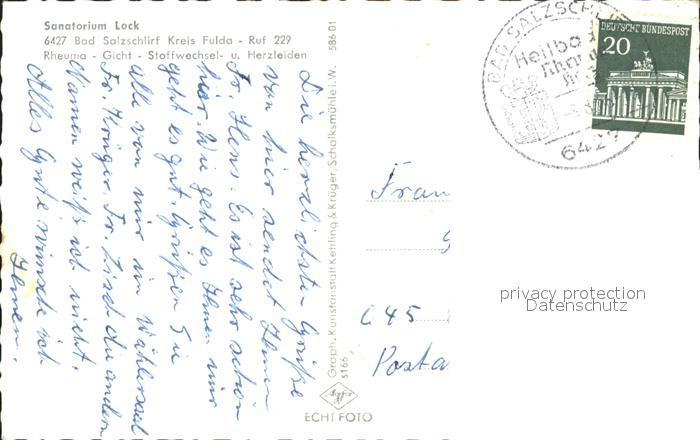 Sanatorium Lock
6427 Bad Salzschlirf Kreis Fulda - Ruf 229
Rheuma - Gicht - Stoffwechsel- u. Herzleiden
586 01
Die herzlichsten Grüße
von hier sendet Ihnen
Fr. Hens. Es ist sehr schön
hier. Wie geht es Ihnen mir
geht es gut. Grüßen Sie
alle von mir im Wählersaal
Fr. Krüger. Fr. Lisch die andern
Namen weiß ich nicht.
Alles Gute wünsche ich
Ihnen.
Graph. Kunstanstalt Kettling & Krüger, Schalksmühle i. W.
s166
Agfa
ECHT FOTO
BAD SALZSCHL
Heilbad
6427
DEUTSCHE BUNDESPOST
20
Frau
645
Posta
privacy protection
Datenschutz